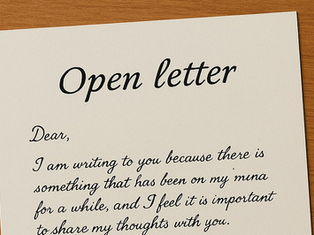 Open letter
Dear,
I am writing to you because there is
something that has been on my muna
for a while, and I feel it is important
to share my thoughts with you.